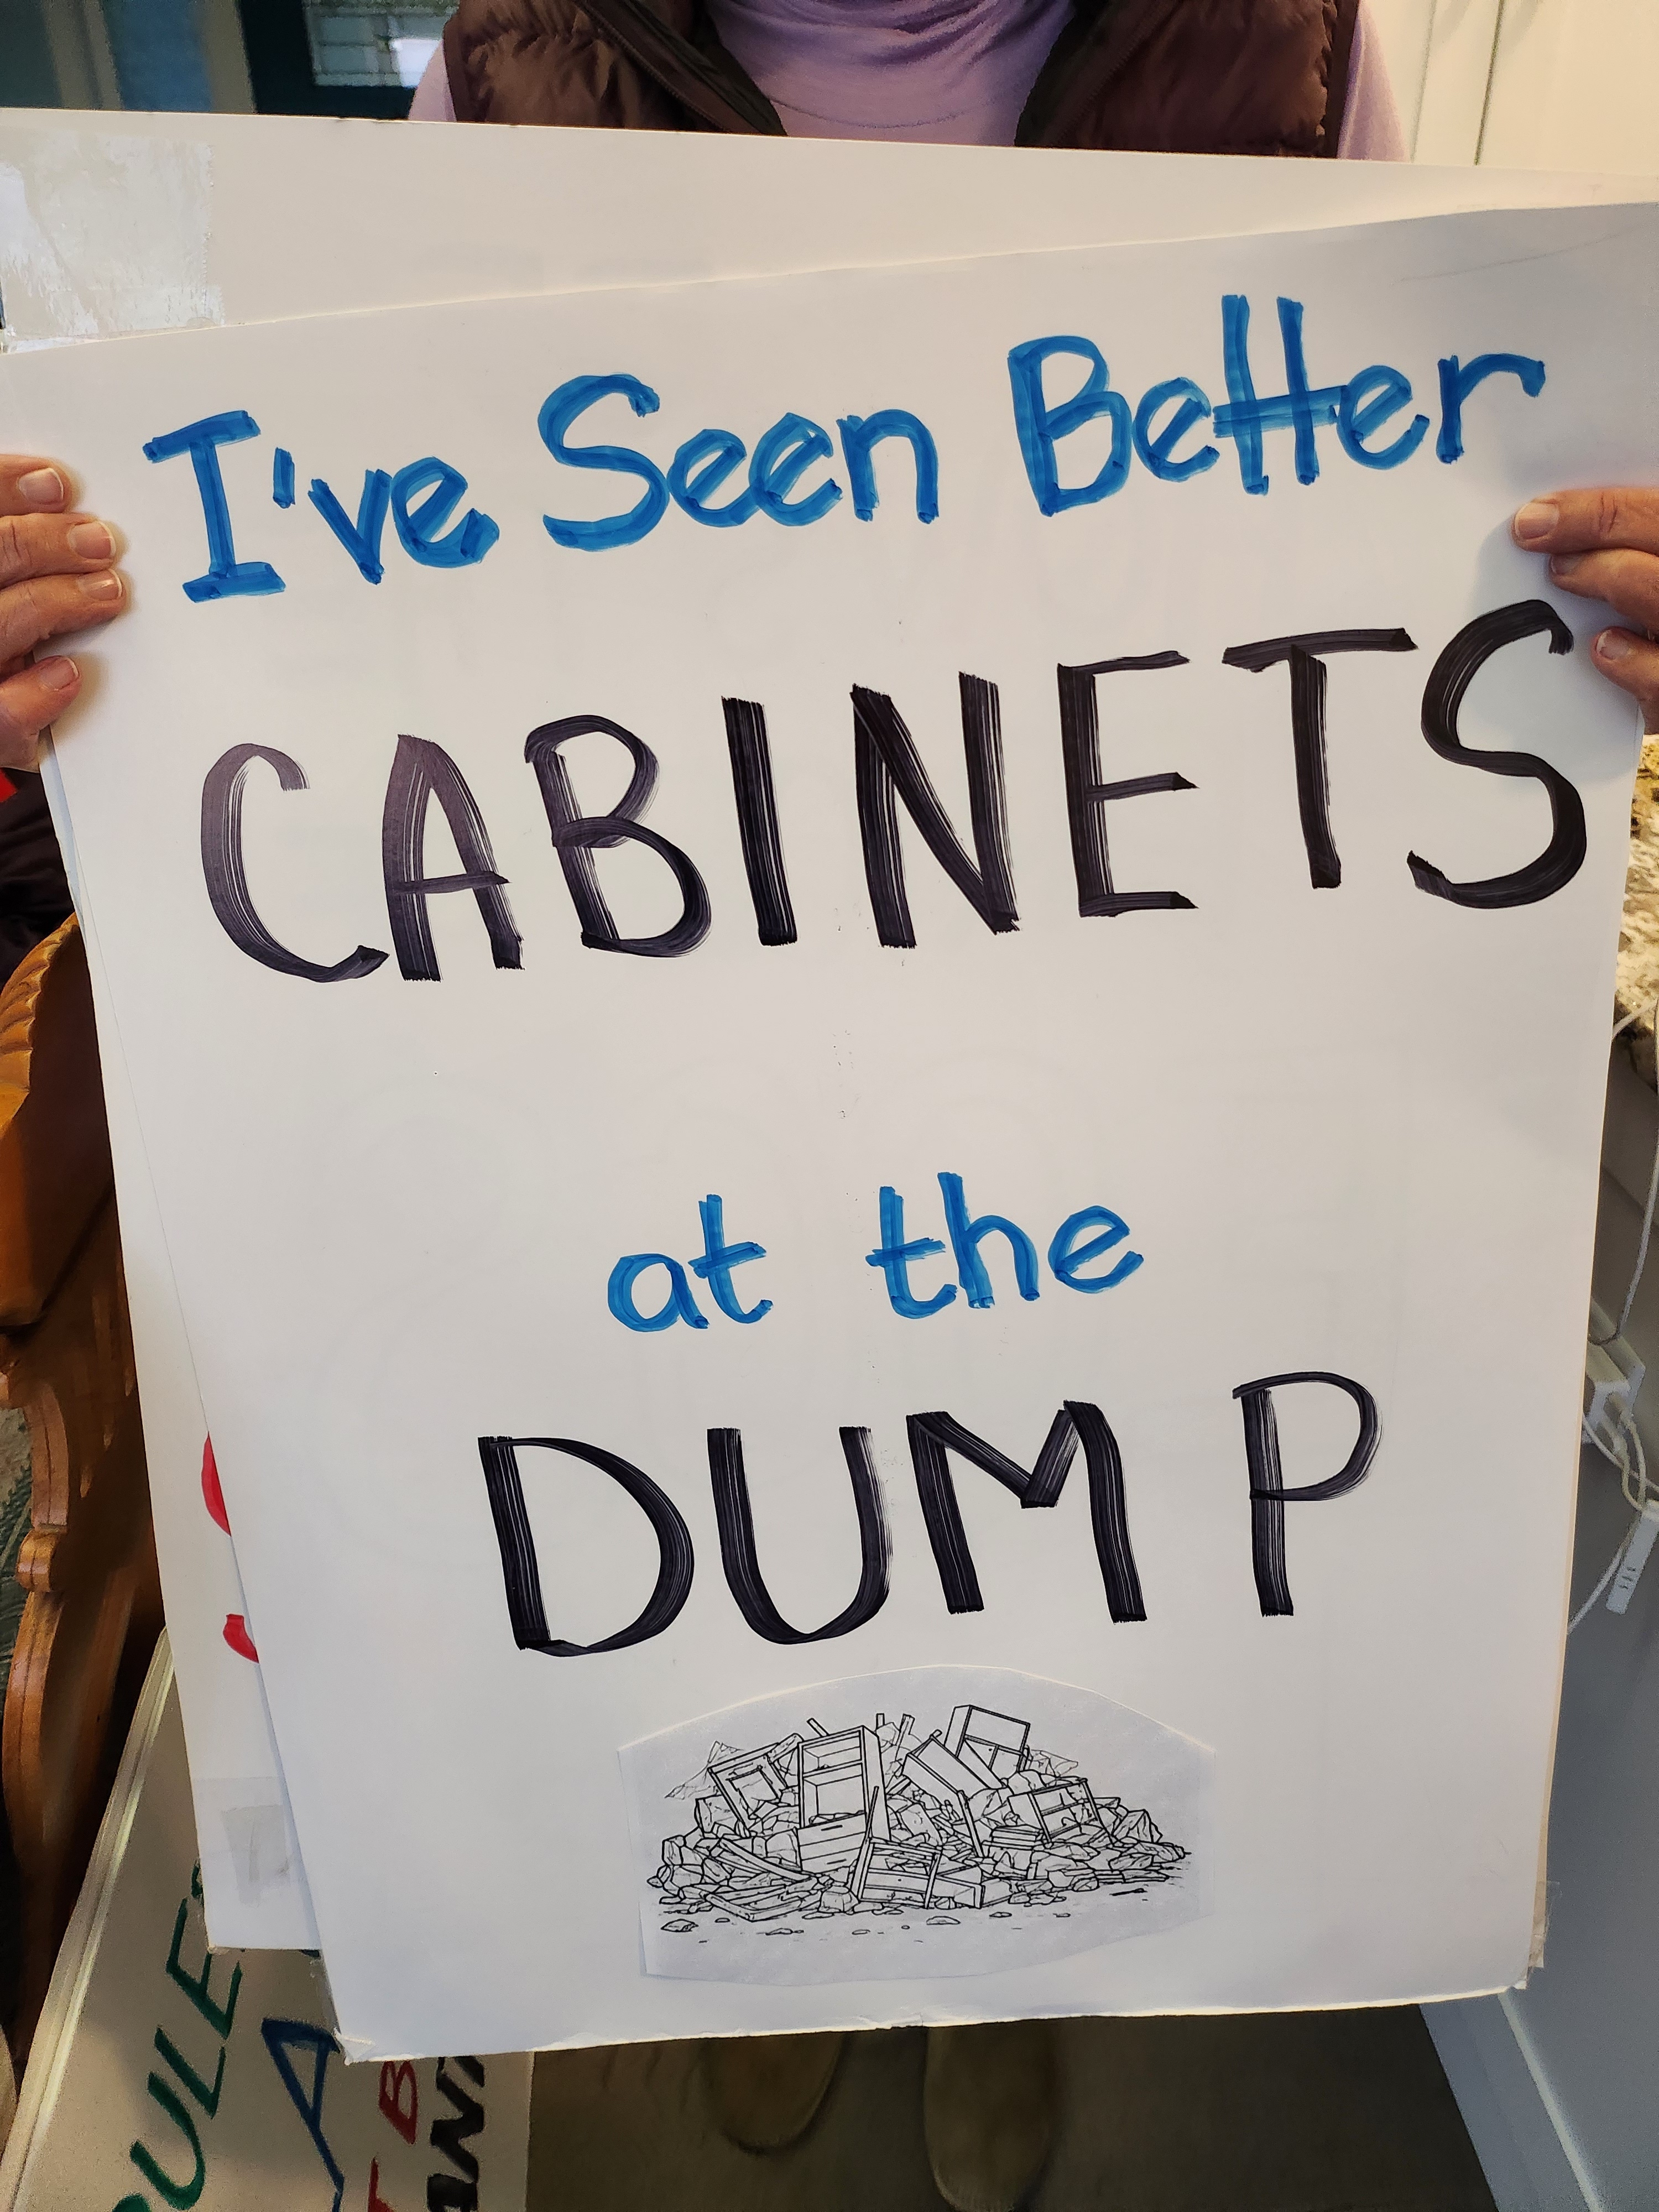 I've Seen Better
CABINETS
at the
DUMP